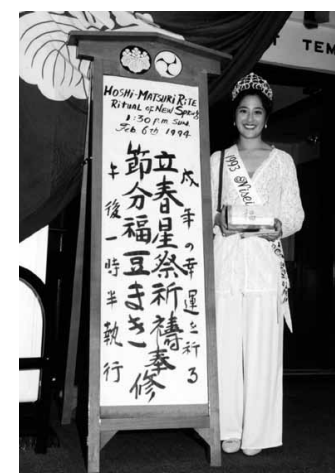 T TEM
HOSHI-MATSURI RITE
RITUAL of NEW Spring
1:30 p.m. SUN
Feb 6th 1994
戌年の幸運を祈る
立春星祭祈禱奉修
節分福豆まき
午後一時半執行
1993 Nisei